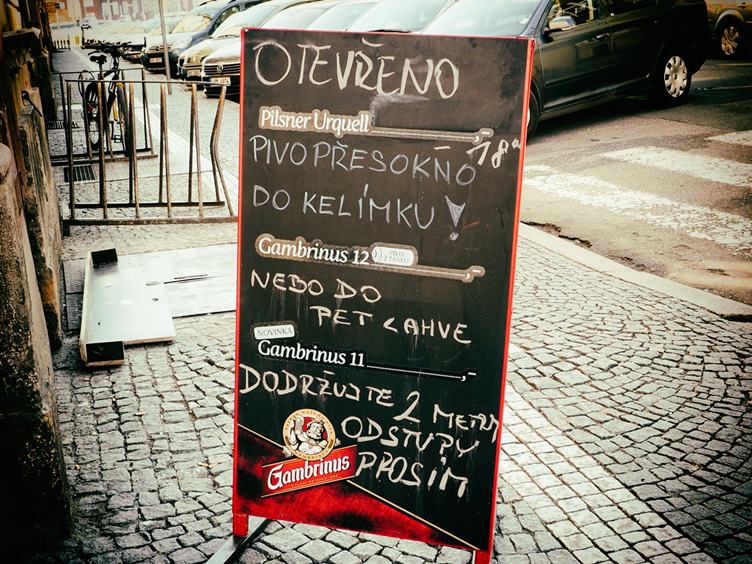 OTEVŘENO
Pilsner Urquell ,-
PIVO PŘES OKNO
DO KELÍMKU!
Gambrinus 12 PIVO Z TANKU ,-
NEBO DO
PET LAHVE
NOVINKA
Gambrinus 11 ,-
DODRŽUJTE 2 METRY
ODSTUPY
PROSÍM
Gambrinus